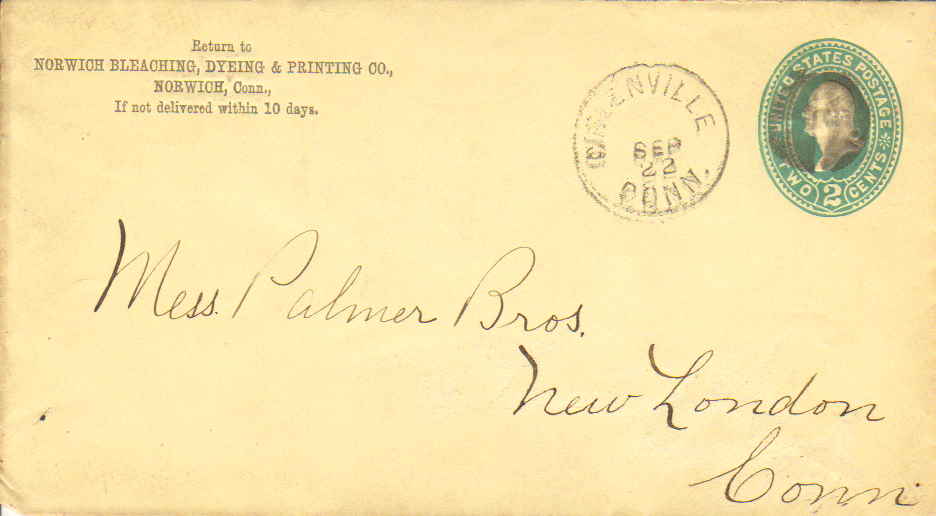 Return to
NORWICH BLEACHING, DYEING & PRINTING CO.,
NORWICH, Conn.,
If not delivered within 10 days.
SEP
22
CONN.
UNITED STATES POSTAGE
TWO 2 CENTS
Mess. Palmer Bros.
New London
Conn